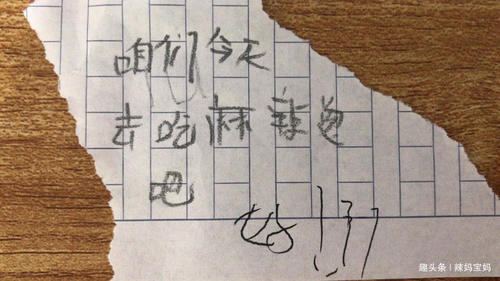 咱们今天
去吃麻辣
吧
好!
趣头条 | 辣妈宝妈